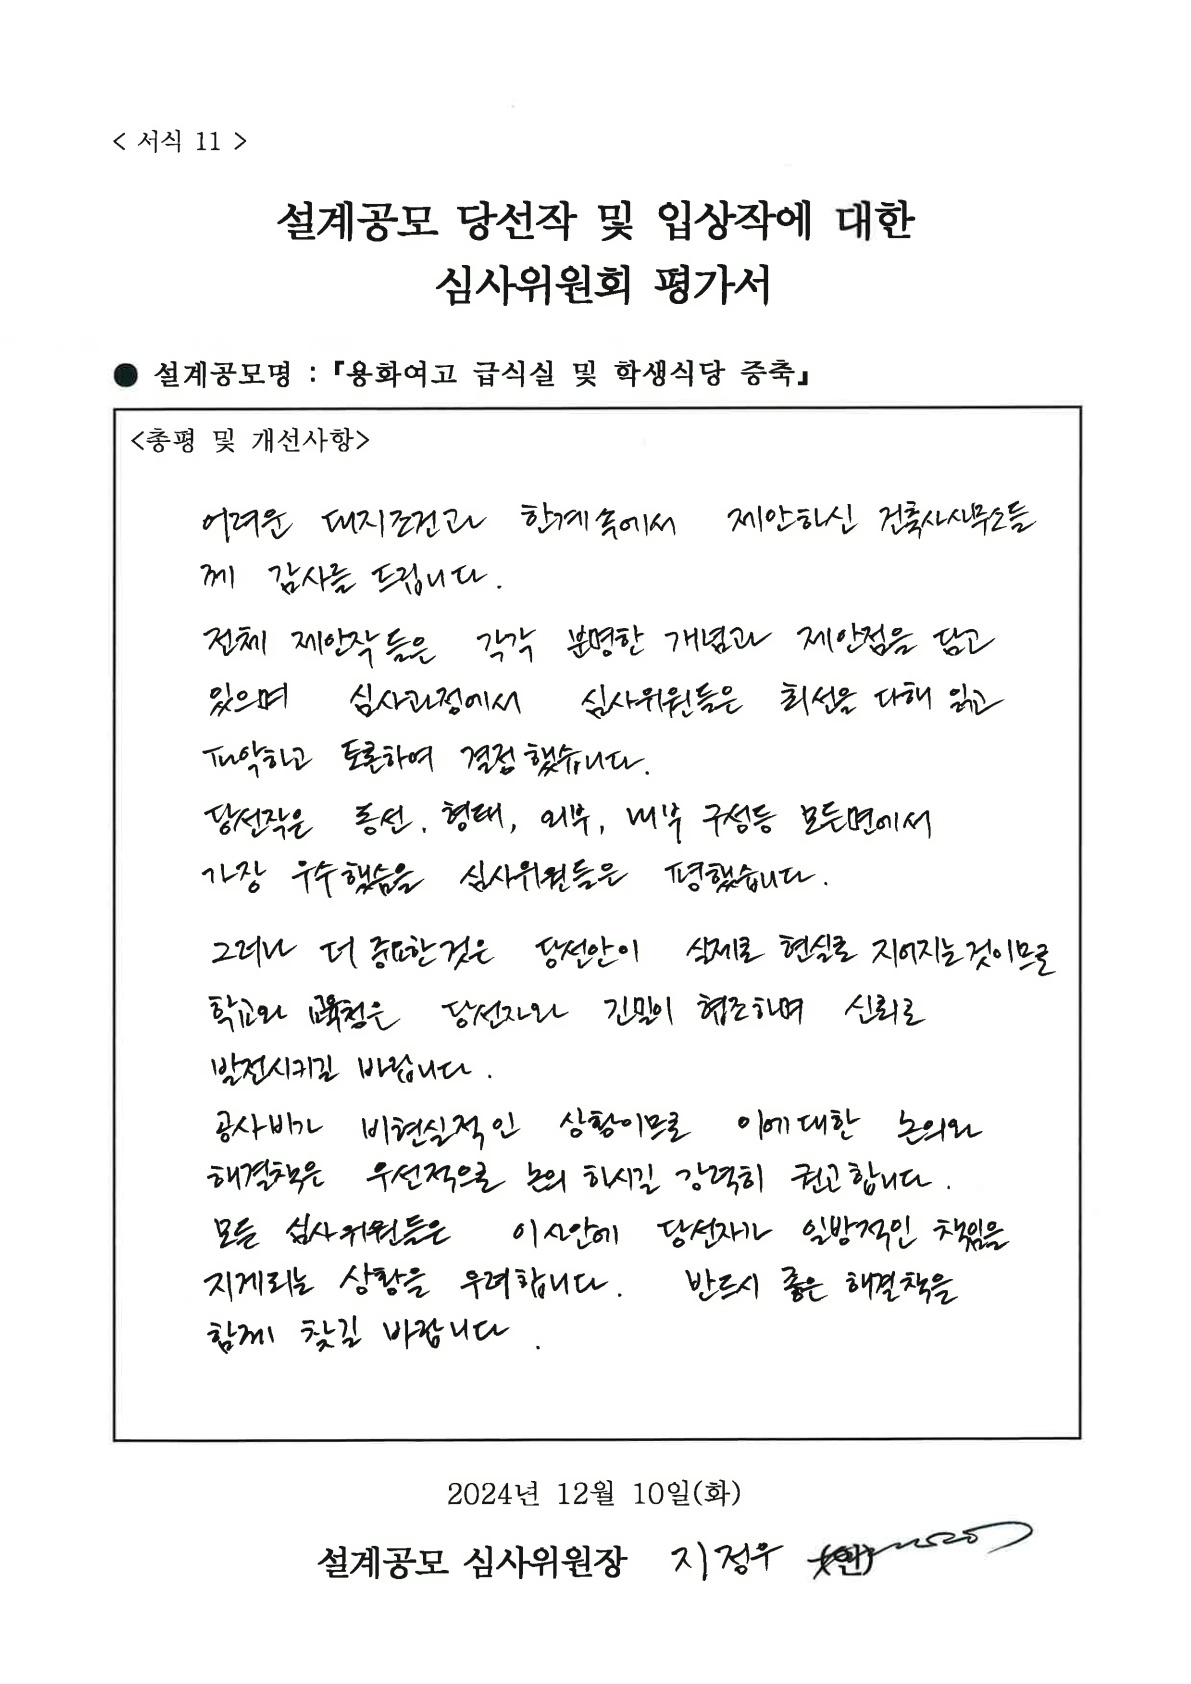 < 서식 11 >
설계공모 당선작 및 입상작에 대한
심사위원회 평가서
● 설계공모명 : 『용화여고 급식실 및 학생식당 증축』
<총평 및 개선사항>
어려운 대지조건과 한계속에서 제안하신 건축사사무소들
께 감사를 드립니다.
전체 제안작들은 각각 분명한 개념과 제안점을 담고
있으며 심사과정에서 심사위원들은 최선을 다해 읽고
파악하고 토론하여 결정했습니다.
당선작은 동선, 형태, 외부, 내부 구성등 모든면에서
가장 우수했음을 심사위원들은 평했습니다.
그러나 더 중요한것은 당선안이 실제로 현실로 지어지는것이므로
학교와 교육청은 당선자와 긴밀히 협조하며 신뢰로
발전시키길 바랍니다.
공사비가 비현실적인 상황이므로 이에대한 논의와
해결책은 우선적으로 논의 하시길 강력히 권고합니다.
모든 심사위원들은 이 사안에 당선자가 일방적인 책임을
지게되는 상황을 우려합니다. 반드시 좋은 해결책을
함께 찾길 바랍니다.
2024년 12월 10일(화)
설계공모 심사위원장 지정우 (인)